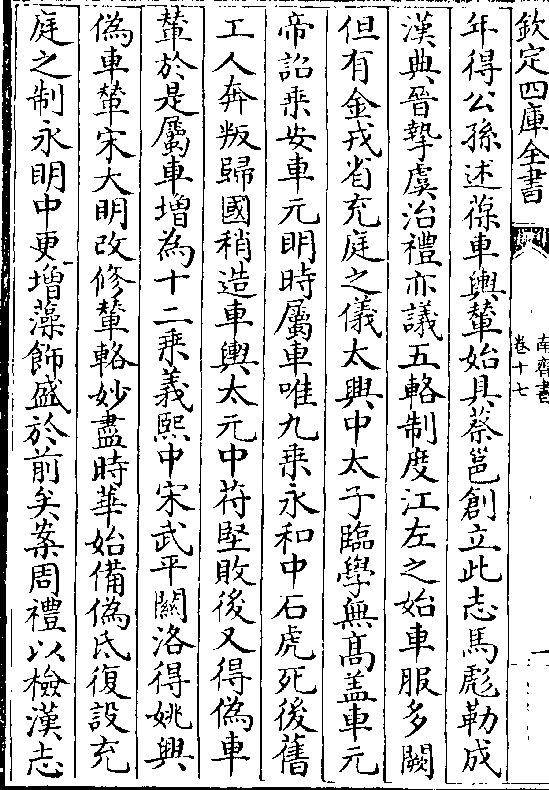 欽定四庫全書
南齊書
卷十七
一
年得公孫述葆車輿輦始具蔡邕創立此志馬彪勒成
漢典晉摯虞治禮亦議五輅制度江左之始車服多闕
但有金戎省充庭之儀太興中太子臨學無髙盖車元
帝詔乗安車元明時屬車唯九乗永和中石虎死後舊
工人奔叛歸國稍造車輿太元中苻堅敗後又得偽車
輦於是屬車増為十二乗義熙中宋武平關洛得姚興
偽車輦宋大明改修輦輅妙盡時華始備偽氐復設充
庭之制永明中更増藻飾盛於前矣案周禮以檢漢志